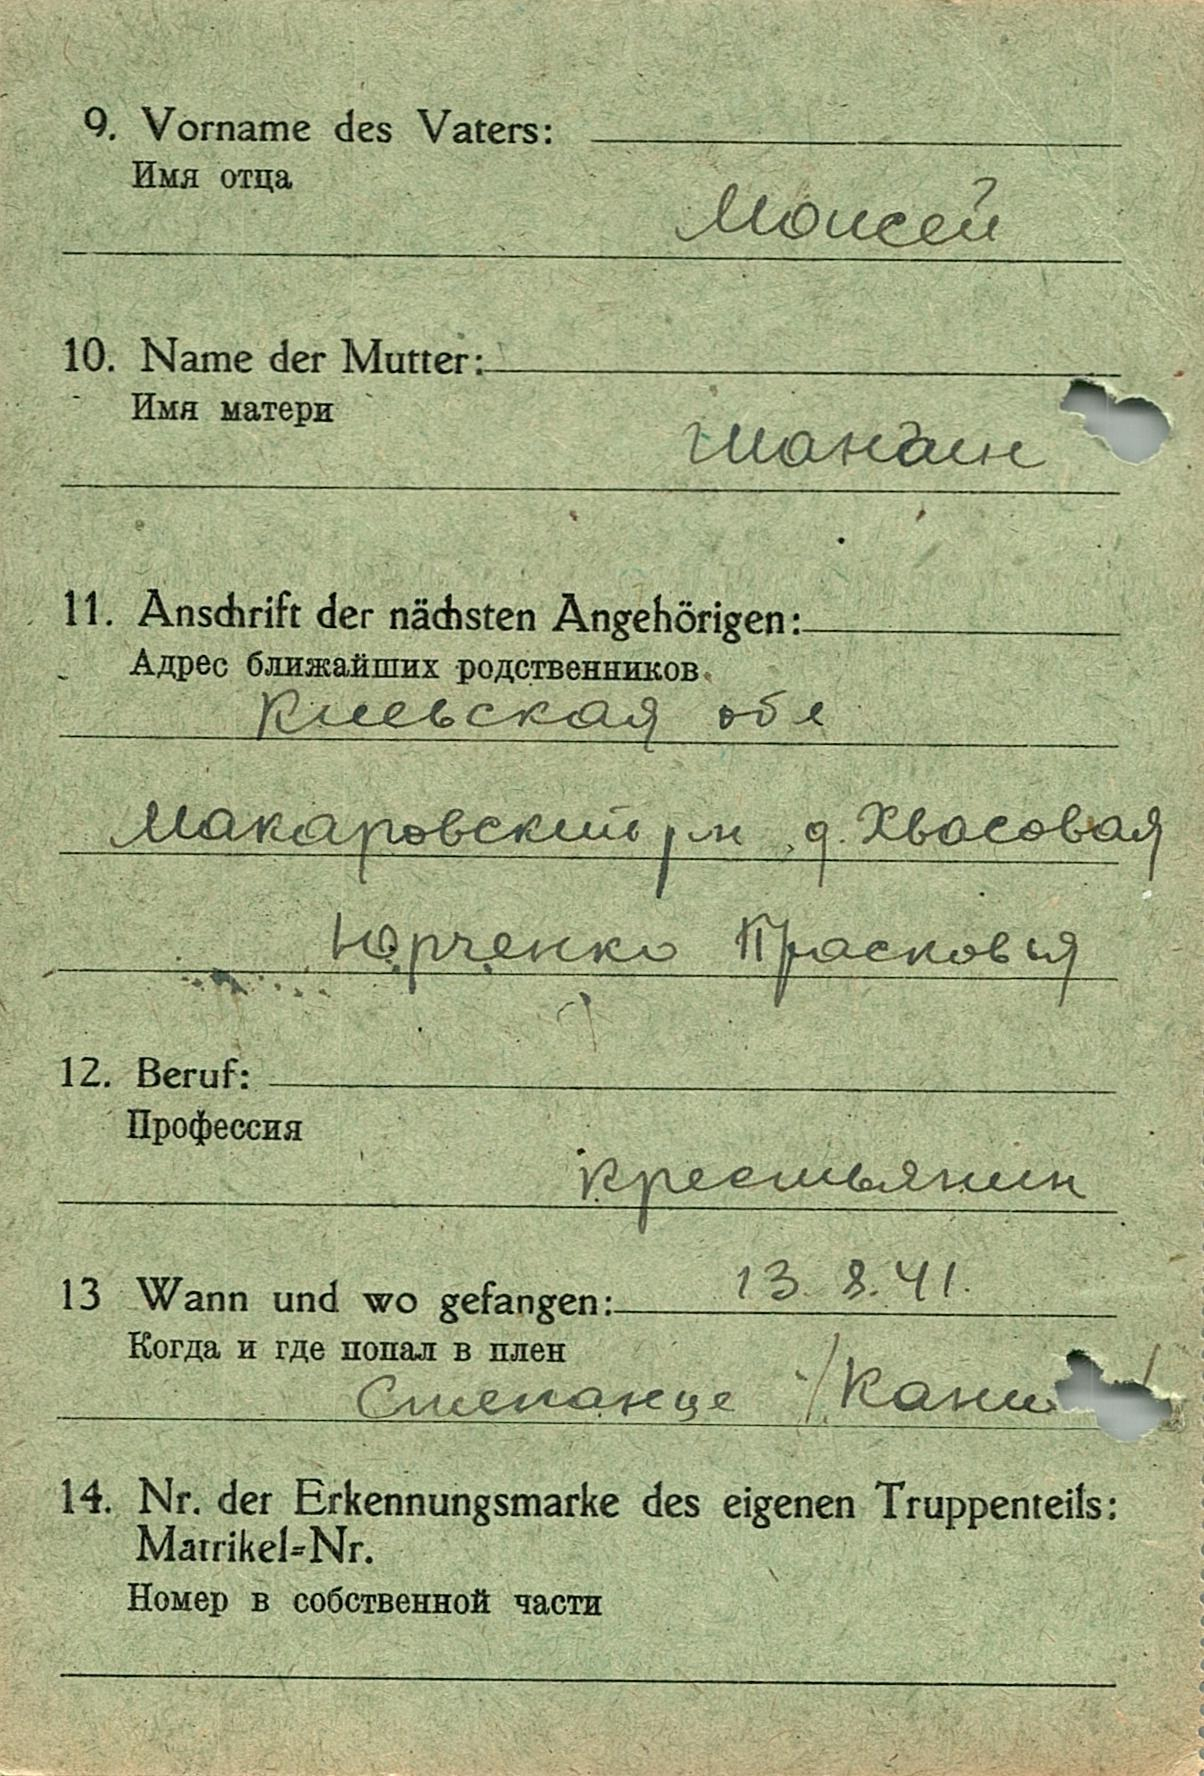 9. Vorname des Vaters:
Имя отца
Моисей
10. Name der Mutter:
Имя матери
11. Anschrift der nächsten Angehörigen:
Адрес ближайших родственников
Киевская обл
Макаровский рн д. Хвасовая
Юрченко Прасковья
12. Beruf:
Профессия
крестьянин
13 Wann und wo gefangen:
13. 8. 41.
Когда и где попал в плен
Степанце /Кани
14. Nr. der Erkennungsmarke des eigenen Truppenteils:
Matrikel=Nr.
Номер в собственной части